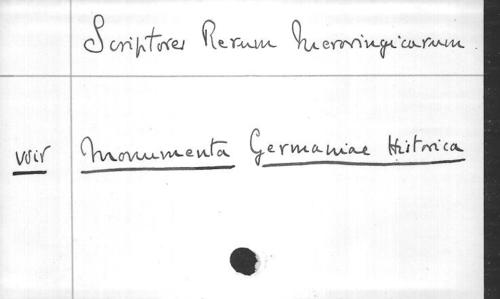 Scriptores Rerum Merovingicarum.
voir Monumenta Germaniae Historica